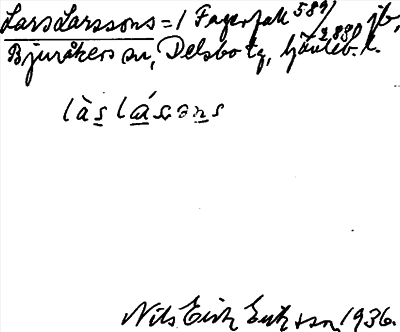 Lars Larssons = 1 Fagerfall 589/2880 jb,
Bjuråkers sn, Delsbo tg, Gävleb. l.
làs lásɑns
Nils Eirik Eriksson 1936.